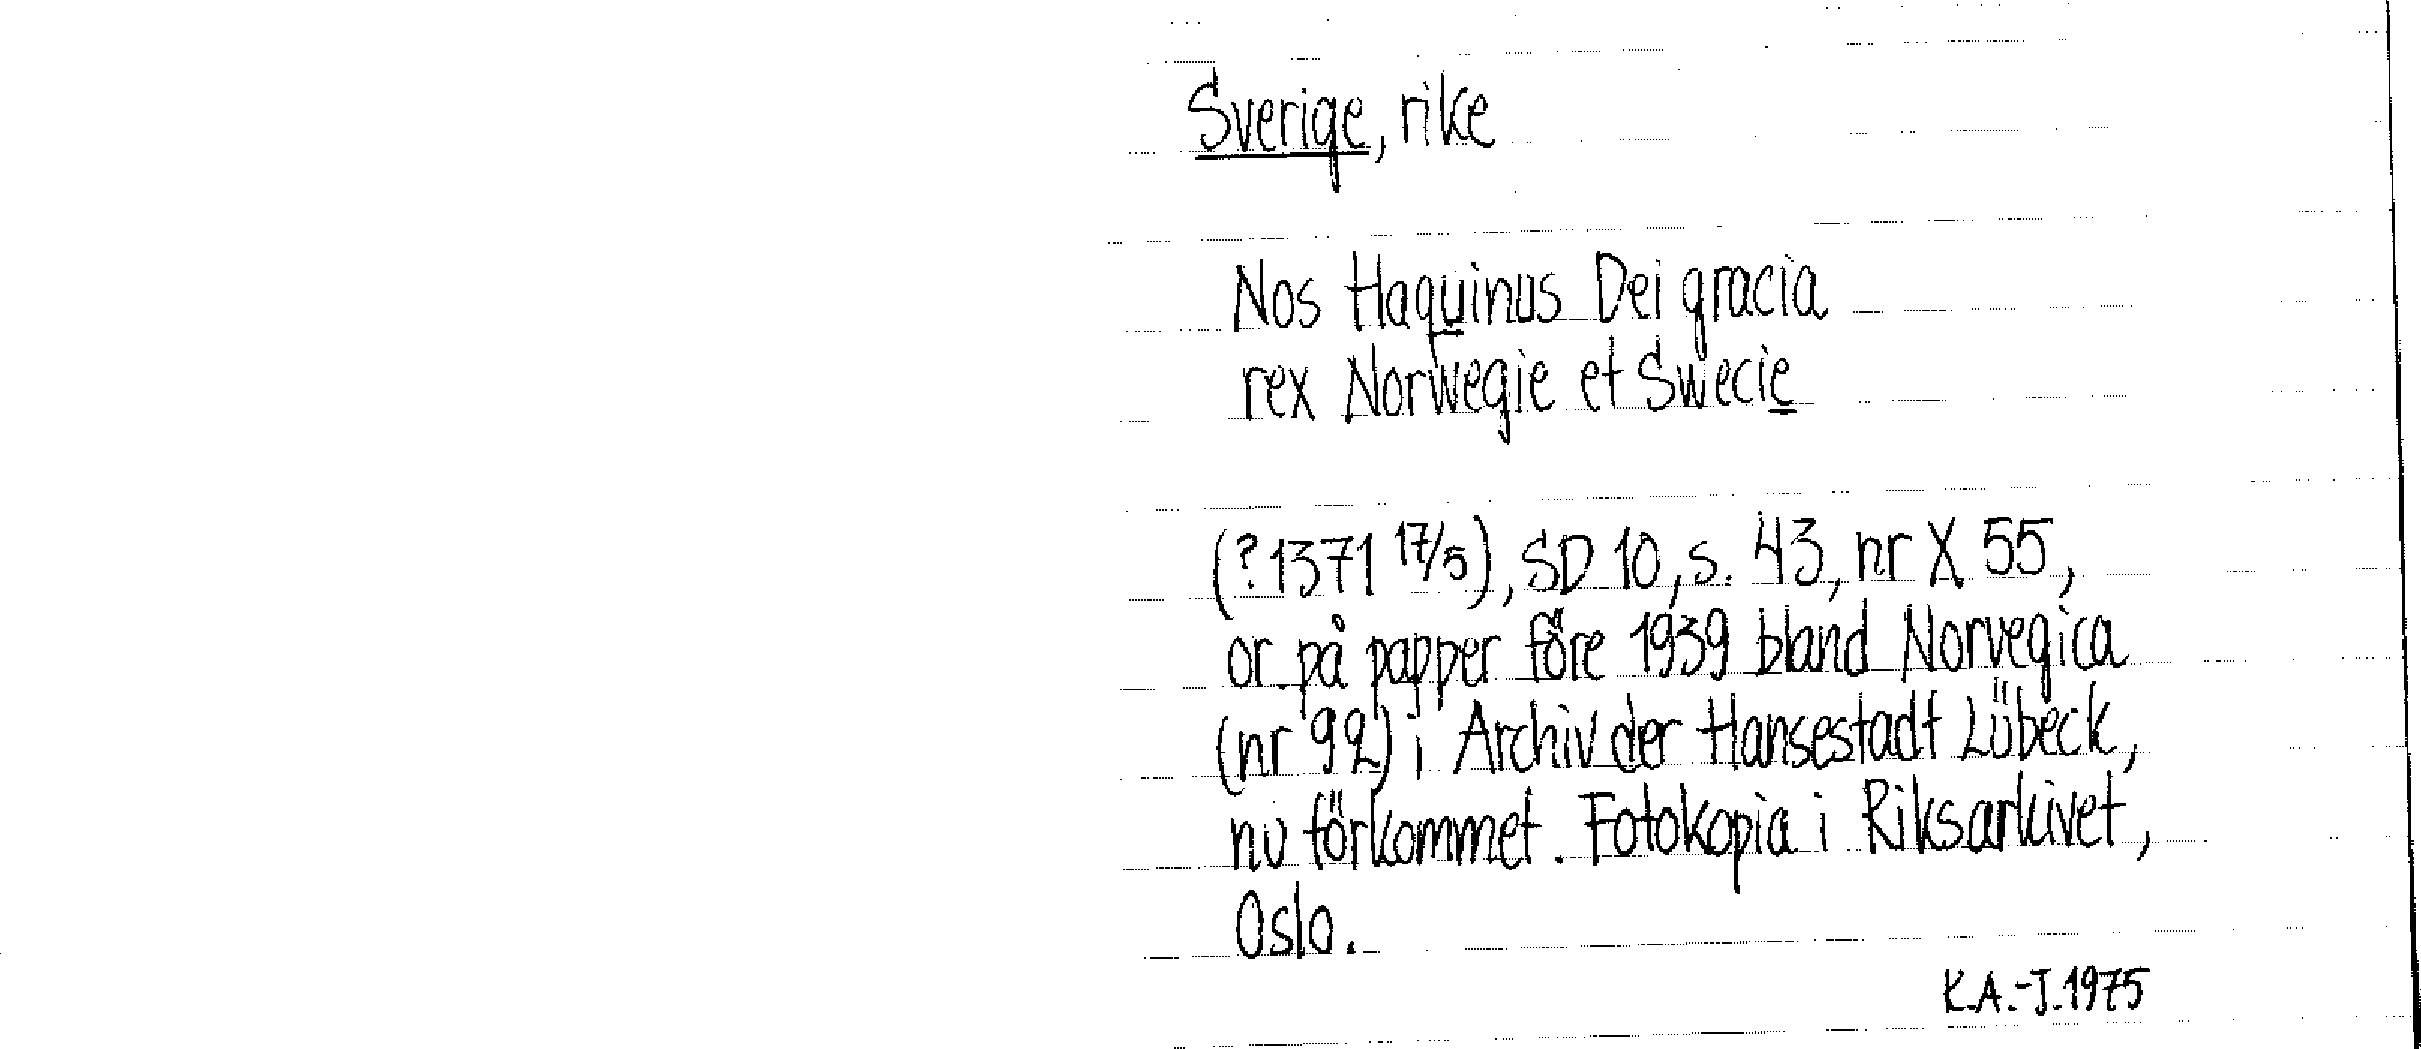 Sverige, rike
Nos Haquinus Dei gracia
rex Norwegie et Swecie
(? 1371 17/5), SD 10, s. 43, nr X 55,
or på papper före 1939 bland Norvegica
(nr 92) i Archiv der Hansestadt Lübeck,
nu förkommet. Fotokopia i Riksarkivet,
Oslo.
K.A.-J. 1975